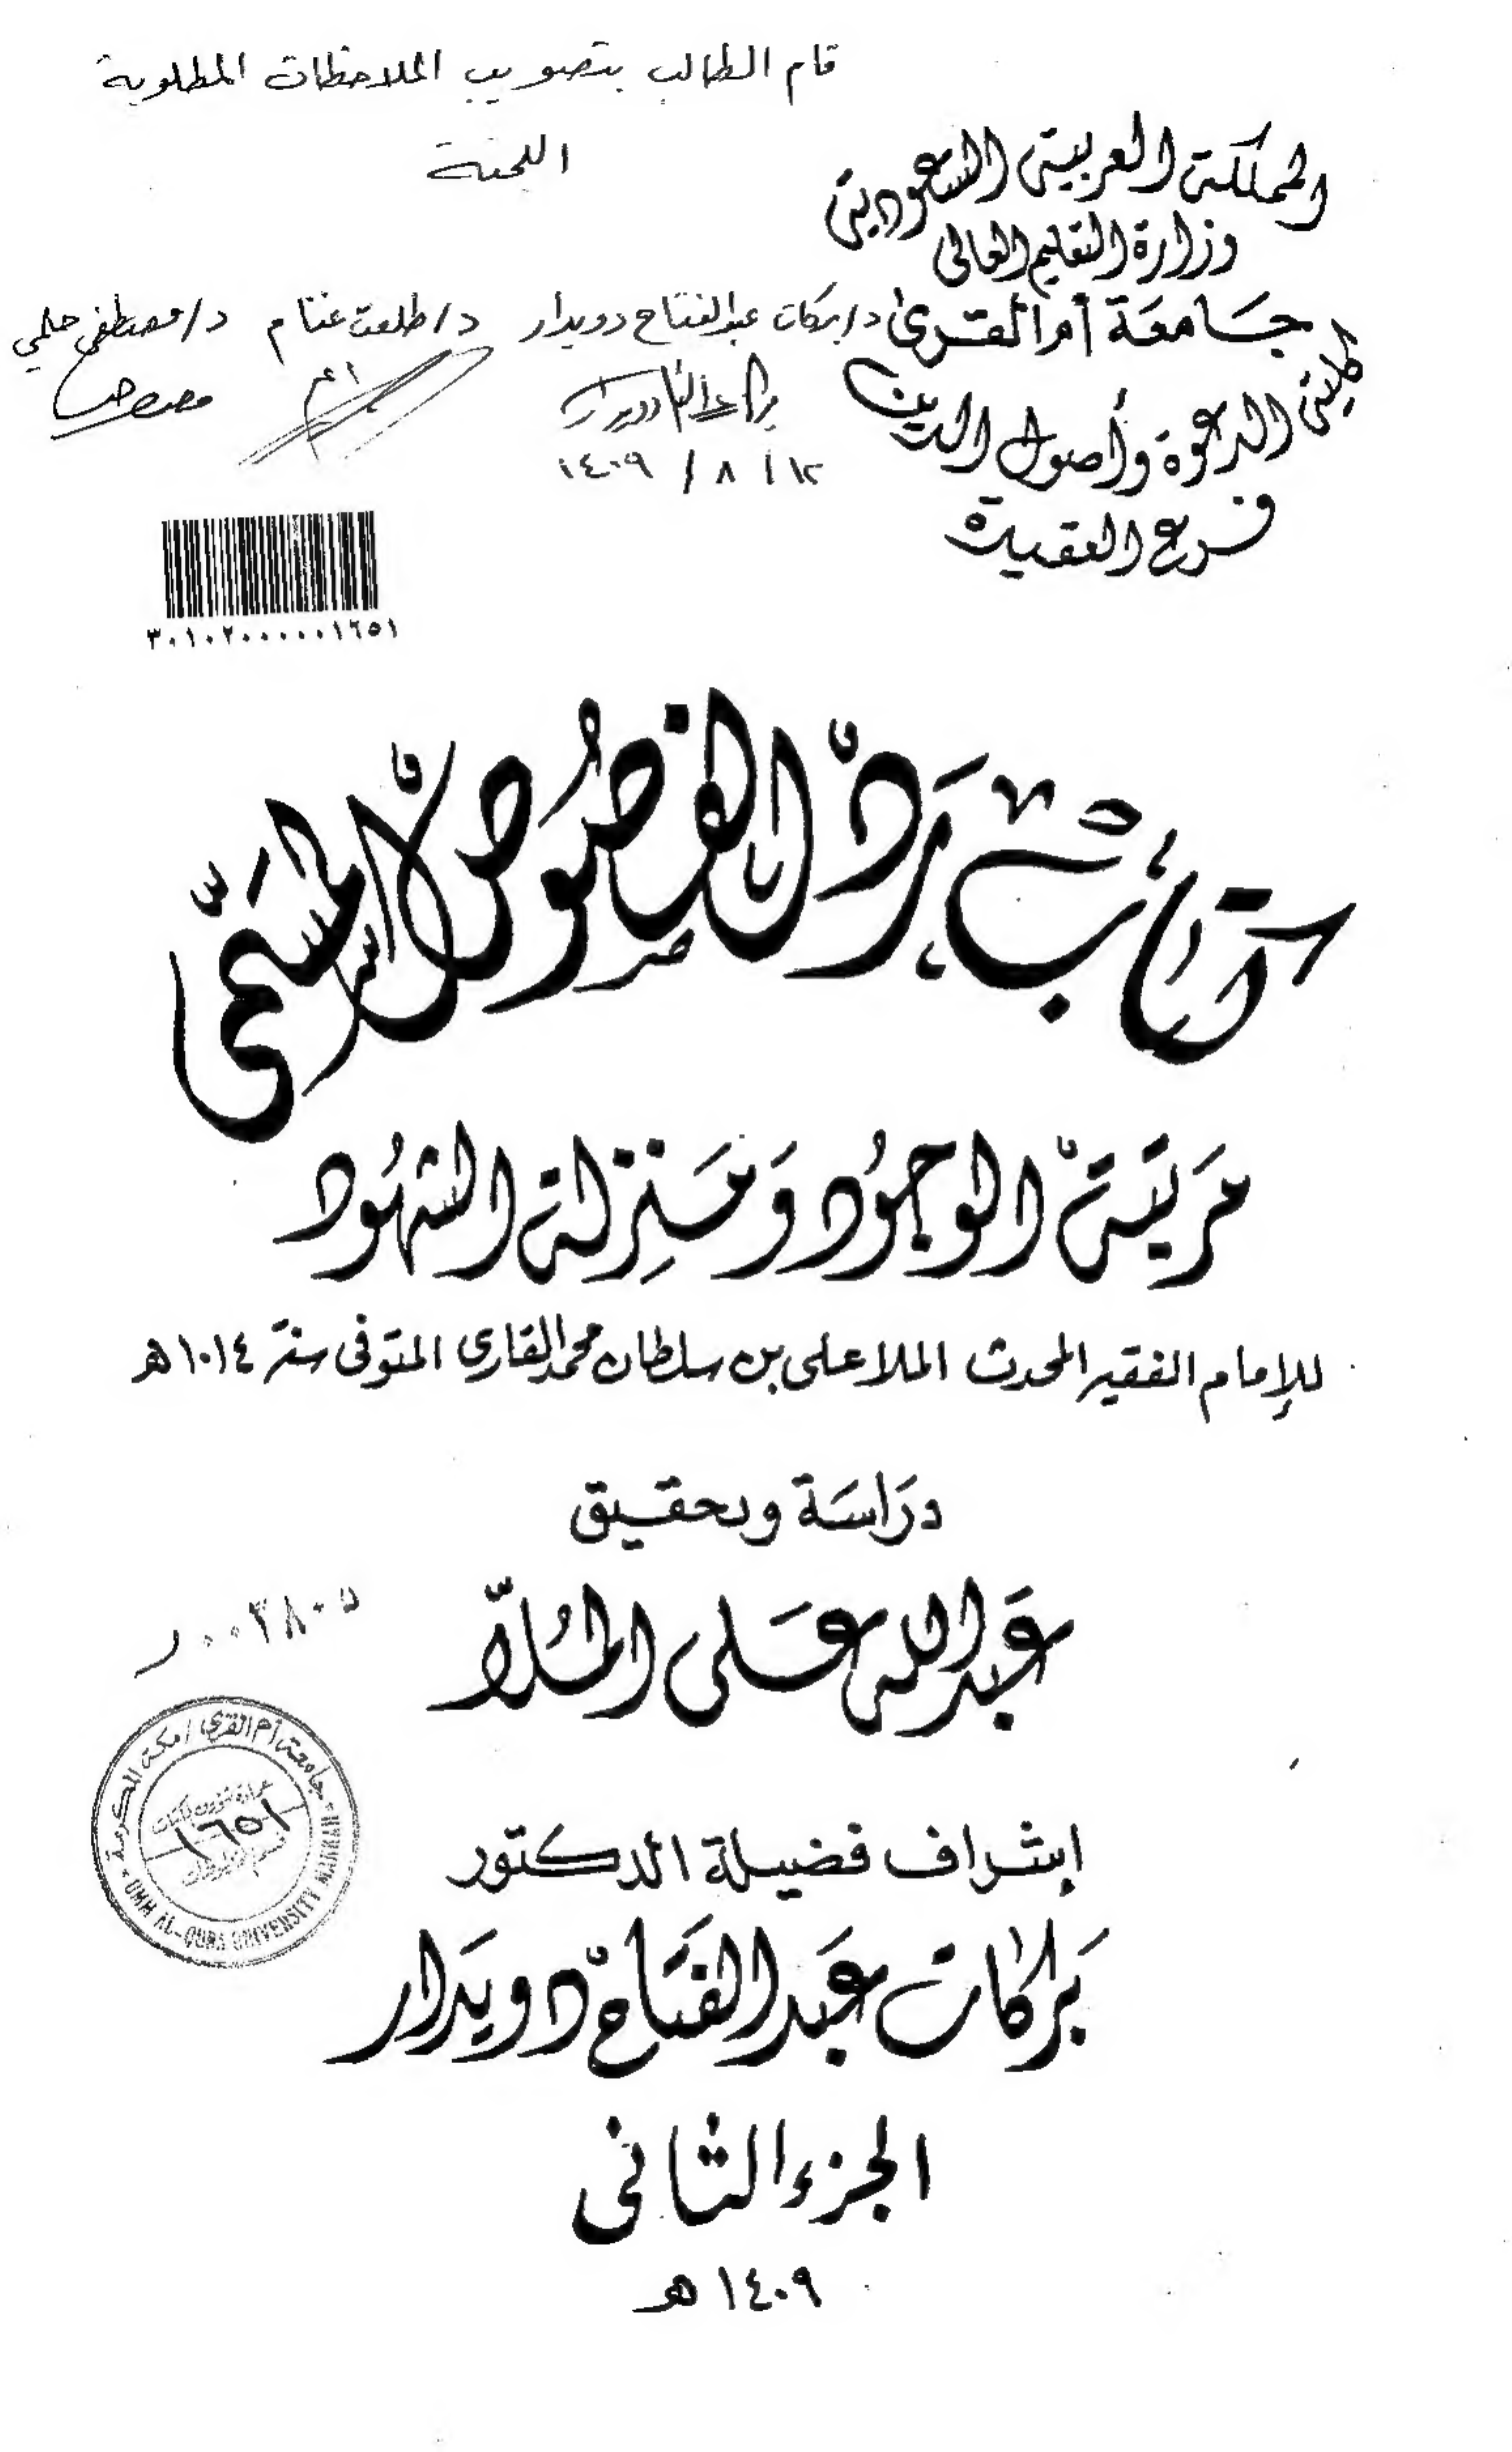 قام الطالب بتصويب الملاحظات المطلوبة
اللجنة
المملكة العربية السعودية
وزارة التعليم العالى
جامعة أم القرى
كلية الدعوة وأصول الدين
فرع العقيدة
د/بركات عبدالفتاح دويدار د/طلعت غنام د/مصطفى حلمي
١٢ / ٨ / ١٤٠٩
٣٠١٠٢٠٠٠٠٠١٦٥١
كتاب رد الفصوص المسمى
مرتبة الوجود ومنزلة الشهود
للإمام الفقيه المحدث الملا على بن سلطان محمد القارى المتوفى سنة ١٠١٤ هـ
دراسة وتحقيق
عبدالله على الملا
٠٠٢٨٠٥
جامعة أم القرى / مكة المكرمة
١٦٥١
UMM AL-QURA UNIVERSITY MAKKAH
إشراف فضيلة الدكتور
بركات عبدالفتاح دويدار
الجزء الثانى
١٤٠٩ هـ